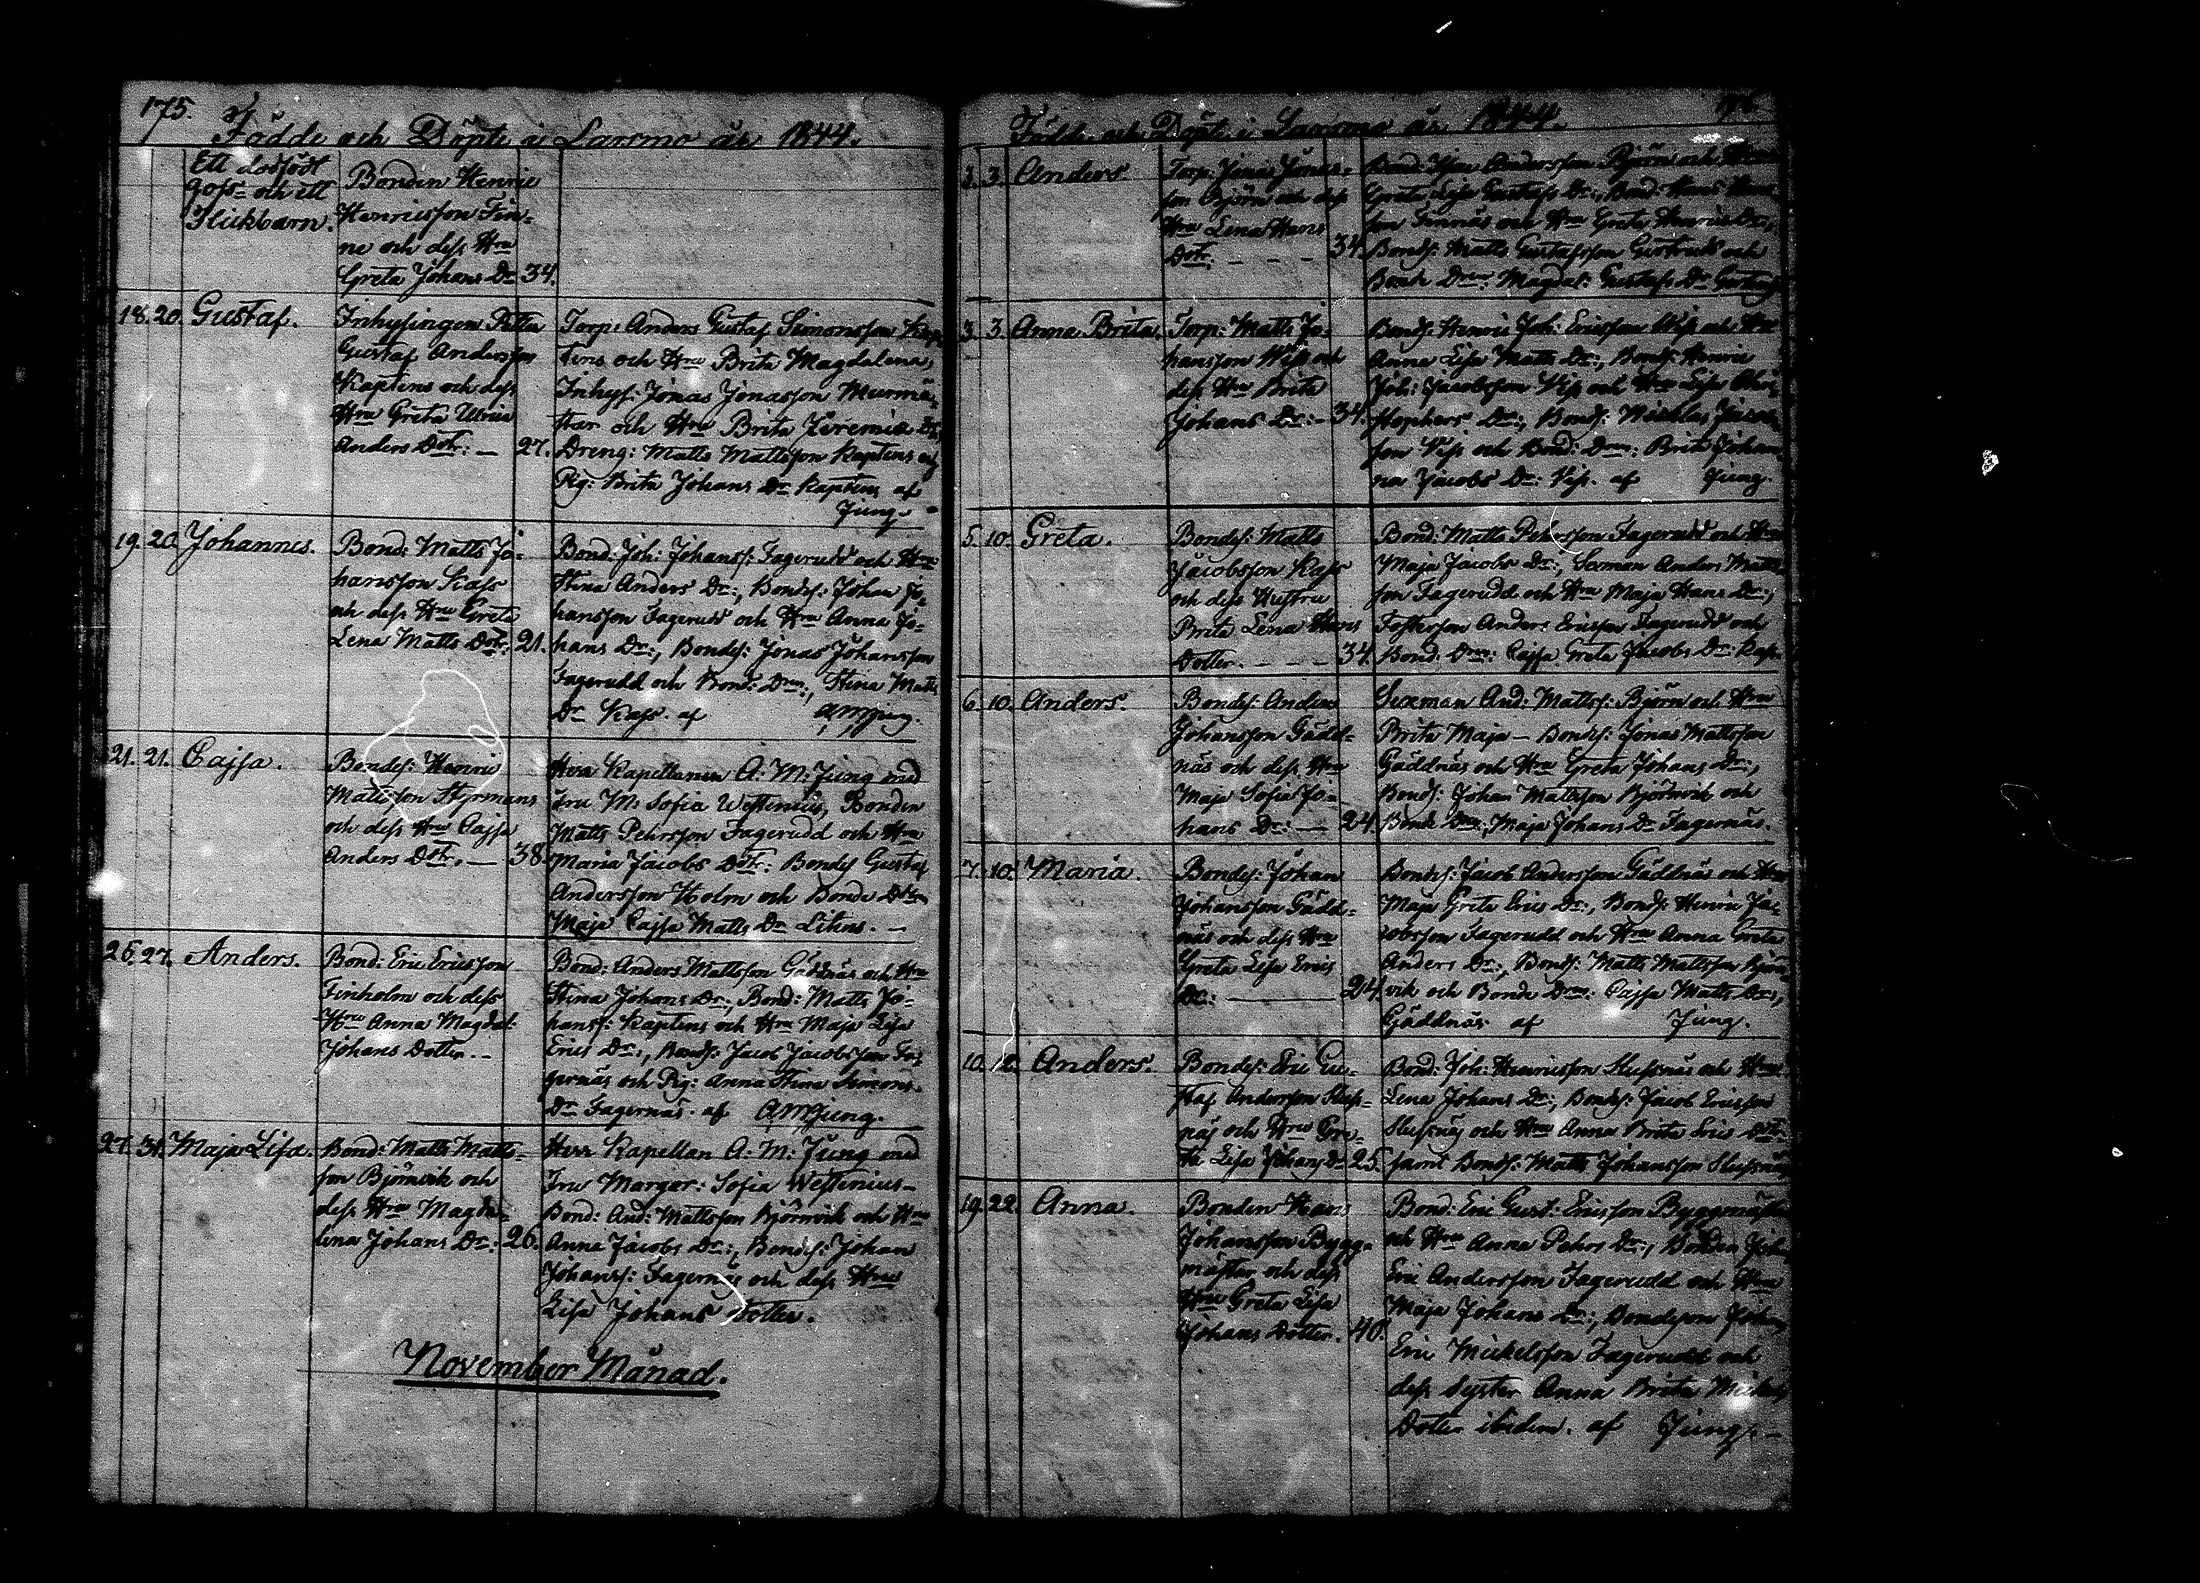 175.
Födde och Döpte i Larsmo år 1844.
Ett dödfödt
goss- och ett
Flickbarn.
Bonden Henric
Henricsson Fin-
ne och dess Hru
Greta Johans Dr 34.
18. 20. Gustaf.
Inhysingen Petter
Gustaf Andersson
Kaptens och dess
Hru Greta Ulrica
Anders Dotr: — 27.
Torp: Anders Gustaf Simonsson Kap-
tens och Hru Brita Magdalena,
Inhys: Jonas Jonasson Murmä-
star och Hru Brita Jeremiæ Dr,
Dreng: Matts Mattsson Kaptens och
Pig: Brita Johans Dr Kaptens af
Jung.
19. 20. Johannes.
Bond: Matts Jo-
hansson Kass
och dess Hru Greta
Lena Matts Dotr: 21.
Bond: Joh: Johanss: Fagerudd och Hru
Stina Anders Dr:, Bondes: Johan Jo-
hansson Fagerudd och Hru Anna Jo-
hans Dr:, Bondes: Jonas Johansson
Fagerudd och Bond: Drn:, Stina Matts
Dr Kass. af AMJung.
21. 21. Cajsa.
Bondes: Henric
Mattsson Styrmans
och dess Hru Cajsa
Anders Dotr. — 38.
Herr Kapellanen A: M: Jung med
Fru M: Sofia Westenius, Bonden
Matts Pehrsson Fagerudd och Hru
Maria Jacobs Dotr: Bondes Gustaf
Andersson Holm och Bonde Dttrn
Maja Cajsa Matts Dr Lihns. —
26. 27. Anders.
Bond: Eric Ericsson
Finholm och dess
Hru Anna Magdal:
Johans Dotter. —
Bond: Anders Mattsson Gäddnäs och Hru
Stina Johans Dr:, Bond: Matts Jo-
hanss: Kaptens och Hru Maja Lisa
Erics Dr:, Bonds: Jacob Jacobsson Fa-
gernäs och Pig: Anna Stina Simons
Dr Fagernäs. af AMJung.
27. 31. Maja Lisa.
Bond: Matts Matts-
son Björnvik och
dess Hru Magda-
lena Johans Dr: 26.
Herr Kapellan A: M: Jung med
Fru Margar: Sofia Westenius —
Bond: And: Mattsson Björnvik och Hru
Anna Jacobs Dr:, Bondes: Johan
Johanss: Fagernäs och dess Hru
Lisa Johans Dotter.
November Månad.
Födde och Döpte i Larsmo år 1844.
3. 3. Anders
Torp: Jonas Jonas-
son Björn och dess
Hru Lena Hans
Dotr. — — — 34.
Bond: Andersson Björn och Hru
Greta Lisa Gustafs Dr:, Bond: Hans
son Finnäs och Hru Greta Henrics Dr:,
Bonds: Matts Gustafsson Gertruds och
Bonde Drn: Magdal: Gustafs Dr
3. 3. Anna Brita.
Torp: Matts Jo-
hansson Wiss och
dess Hru Brita
Johans Dr: — 34.
Bonds: Henric Joh: Ericsson Wiss och Hru
Anna Lisa Matts Dr:, Bonds: Henric
Joh: Jacobsson Viss och Hru Lisa Chri-
stophers Dr:, Bonds: Micklas
son Viss och Bond: Drn: Brita Johan-
na Jacobs Dr: Viss. af Jung.
5. 10. Greta.
Bondes: Matts
Jacobsson Kass
och dess Hustru
Brita Lena Hans
Dotter. — — — 34.
Bond: Matts Pehrsson Fagerudd och Hru
Maja Jacobs Dr:, Anders Matts-
son Fagerudd och Hru Maja Hans Dr:,
Fosterson Anders Ericsson Fagerudd och
Bond: Drn: Cajsa Greta Jacobs Dr: Kass.
6. 10. Anders.
Bondes: Anders
Johansson Gädd-
näs och dess Hru
Maja Sofia Jo-
hans Dr: — 24.
Sexman And: Mattss: Björn och Hru
Brita Maja — Bondes: Jonas Mattsson
Gäddnäs och Hru Greta Johans Dr:,
Bonds: Johan Mattsson Björnvik och
Bonde Drn: Maja Johans Dr Fagernäs.
7. 10. Maria.
Bondes: Johan
Johansson Gädd-
näs och dess Hru
Greta Lisa Erics
Dr: — 24.
Bondes: Jacob Andersson Gäddnäs och Hru
Maja Greta Erics Dr:, Bonds: Henric Ja-
cobsson Fagerudd och Hru Anna Greta
Anders Dr:, Bonds: Matts Mattsson Björn-
vik och Bonde Drn: Cajsa Matts Dr:,
Gäddnäs af Jung.
10. 12. Anders.
Bondes: Eric Gu-
staf Andersson Sluss-
näs och Hru Gre-
ta Lisa Johans Dr 25.
Bond: Joh: Henricsson Slussnäs och Hru
Lena Johans Dr:, Bonds: Jacob Ericsson
Slussnäs och Hru Anna Brita Erics Dotr:
samt Bonds: Matts Johansson Slussnäs
19. 22. Anna.
Bonden Hans
Johansson Bygg-
mästar och dess
Hru Greta Lisa
Johans Dotter. 40.
Bond: Eric Gust: Ericsson Byggmästar
och Hru Anna Pehrs Dr:, Bonden Joh:
Eric Andersson Fagerudd och Hru
Maja Johans Dr:, Bondeson Johan
Eric Mickelsson Fagerudd och
dess Syster Anna Brita Mickels
Dotter ibidem. af Jung. —